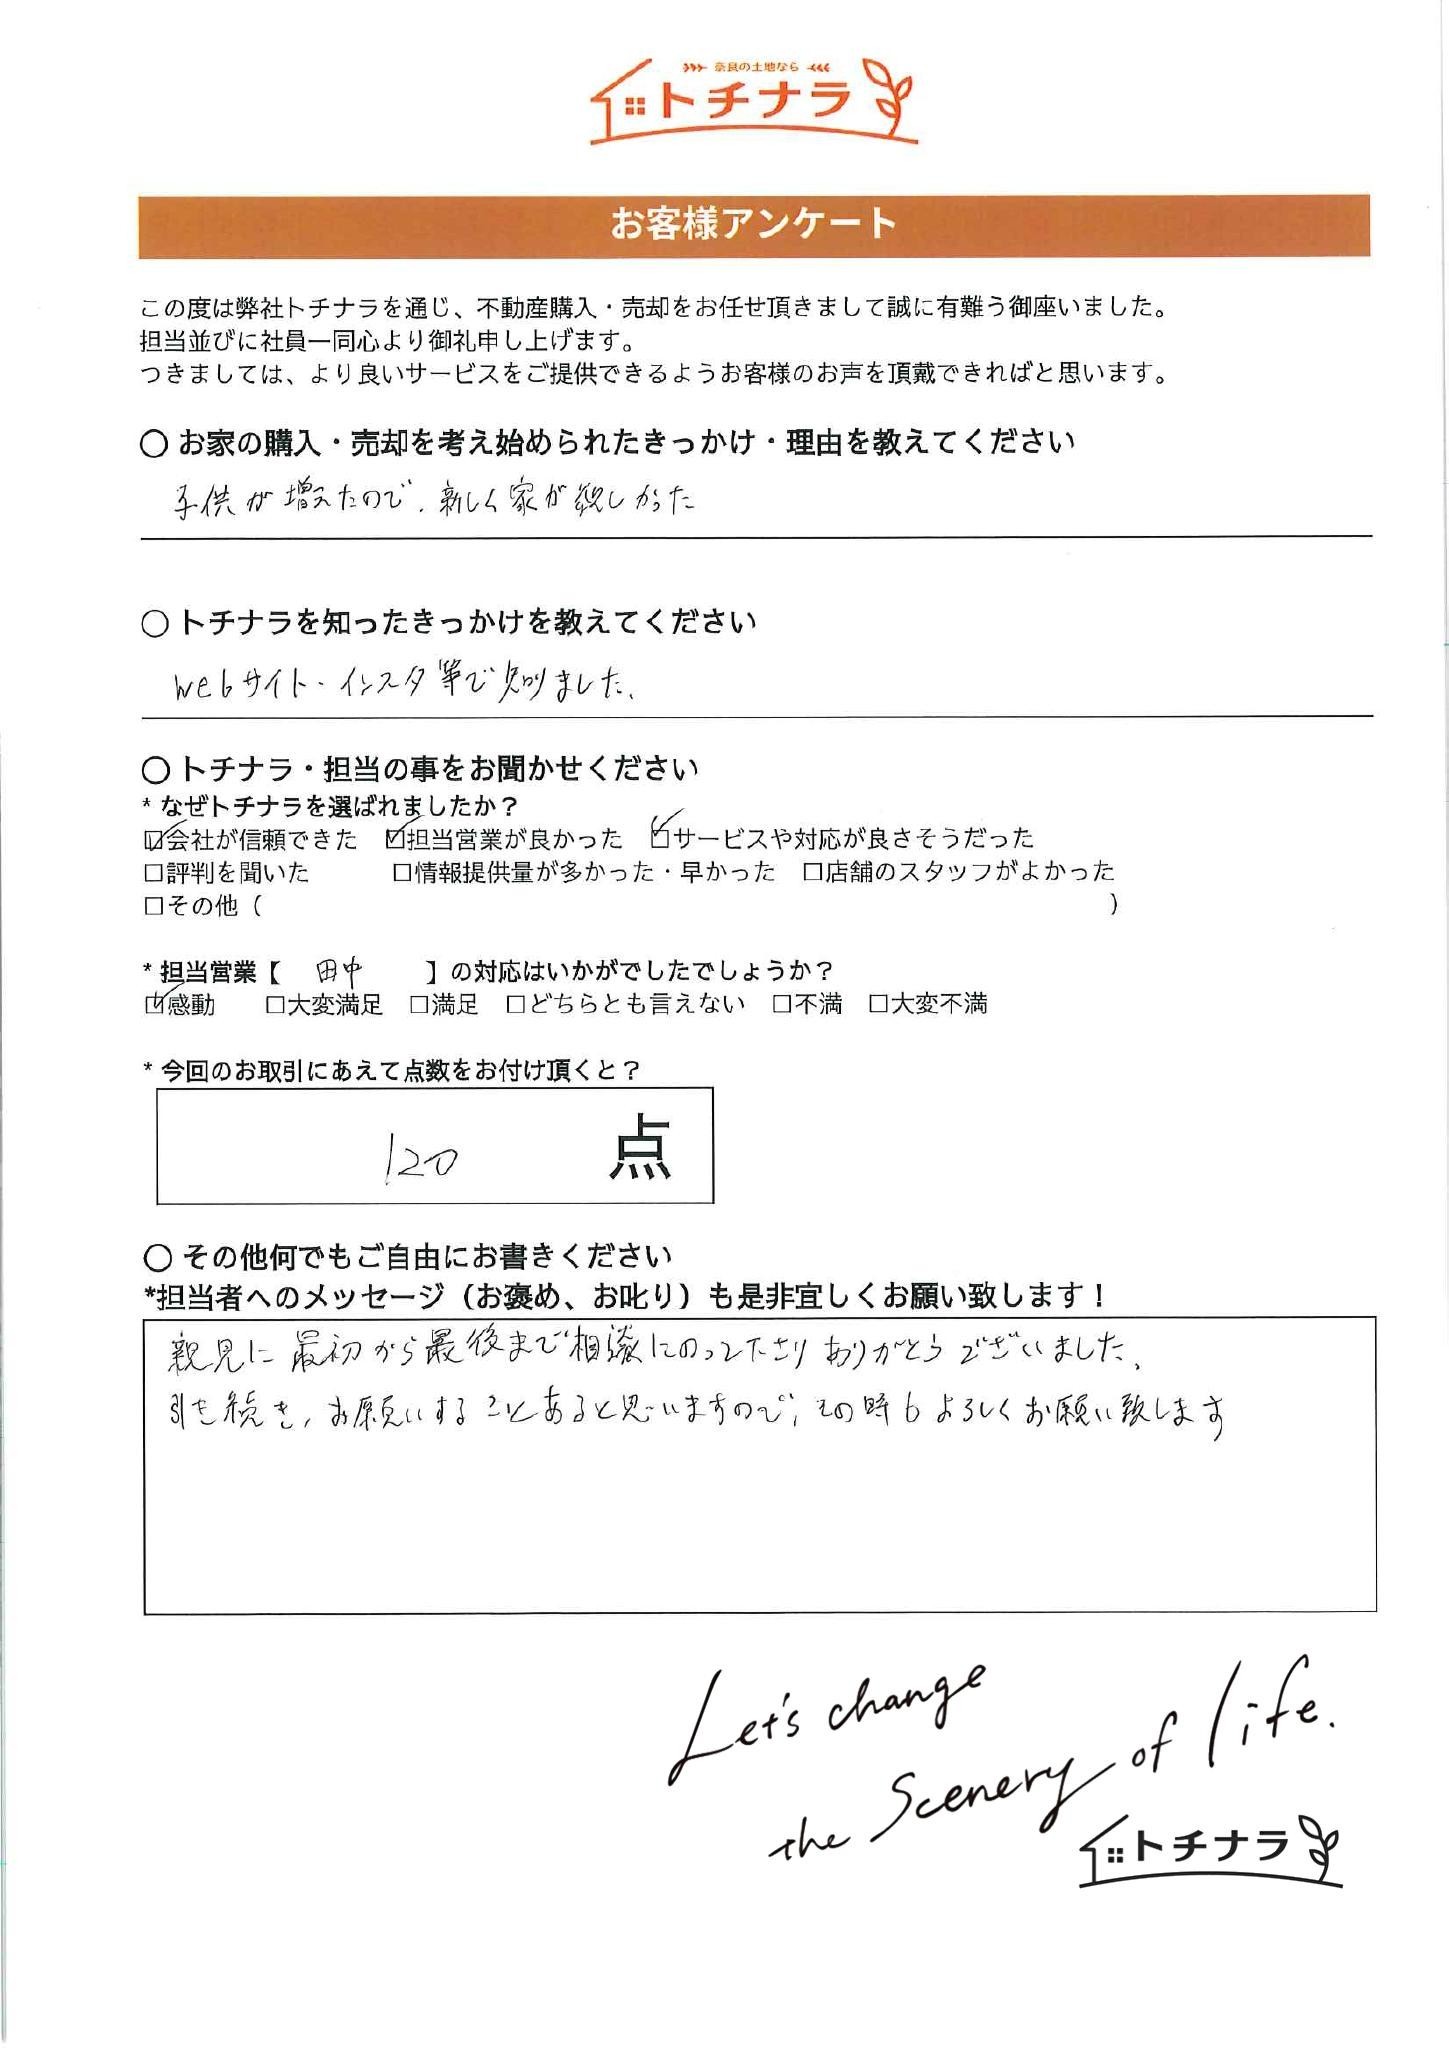 奈良の土地なら
トチナラ
お客様アンケート
この度は弊社トチナラを通じ、不動産購入・売却をお任せ頂きまして誠に有難う御座いました。
担当並びに社員一同心より御礼申し上げます。
つきましては、より良いサービスをご提供できるようお客様のお声を頂戴できればと思います。
○ お家の購入・売却を考え始められたきっかけ・理由を教えてください
子供が増えたので、新しく家が欲しかった
○ トチナラを知ったきっかけを教えてください
webサイト・インスタ等で知りました。
○ トチナラ・担当の事をお聞かせください
* なぜトチナラを選ばれましたか？
☑会社が信頼できた ☑担当営業が良かった ☑サービスや対応が良さそうだった
□評判を聞いた □情報提供量が多かった・早かった □店舗のスタッフがよかった
□その他（ ）
* 担当営業【 田中 】の対応はいかがでしたでしょうか？
☑感動 □大変満足 □満足 □どちらとも言えない □不満 □大変不満
* 今回のお取引にあえて点数をお付け頂くと？
120 点
○ その他何でもご自由にお書きください
*担当者へのメッセージ（お褒め、お叱り）も是非宜しくお願い致します！
親見に最初から最後まで相談にのって下さりありがとうございました。
引き続き、お願いすることあると思いますので、その時もよろしくお願い致します
Let's change
the Scenery of life.
トチナラ